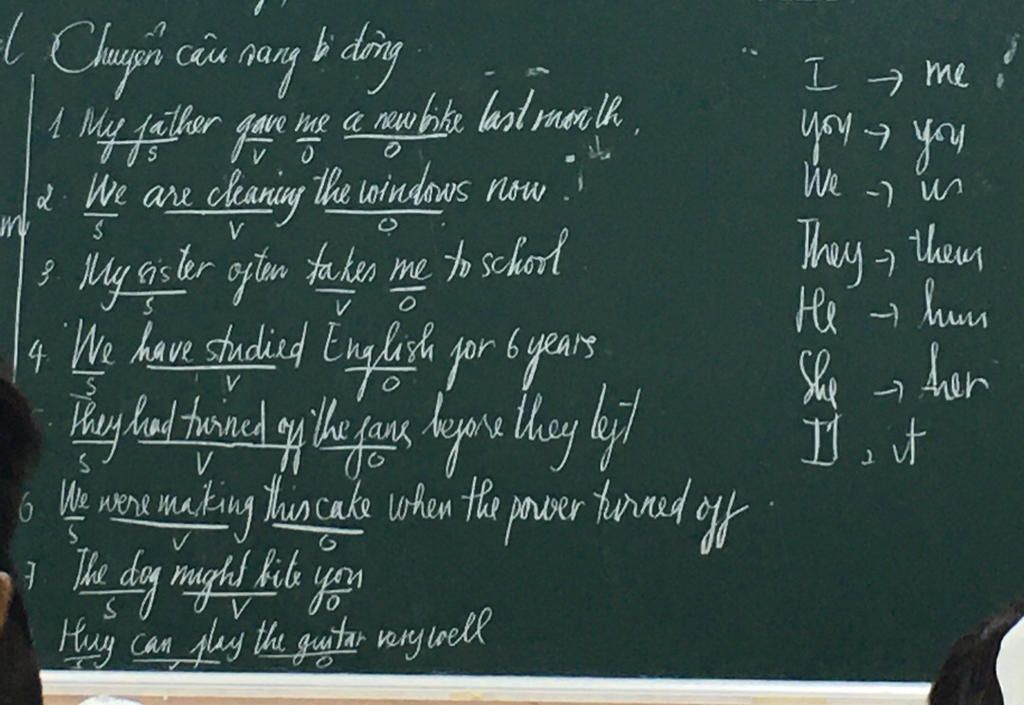 Chuyển câu sang bị động
1. My father gave me a new bike last month.
S V O O
2. We are cleaning the windows now.
S V O
3. My sister often takes me to school
S V O
4. We have studied English for 6 years
S V O
They had turned off the fans before they left
S V O
6 We were making this cake when the power turned off
S V O
7. The dog might bite you
S V O
Huy can play the guitar very well
S V O
I → me
you → you
We → us
They → them
He → him
She → her
It → it